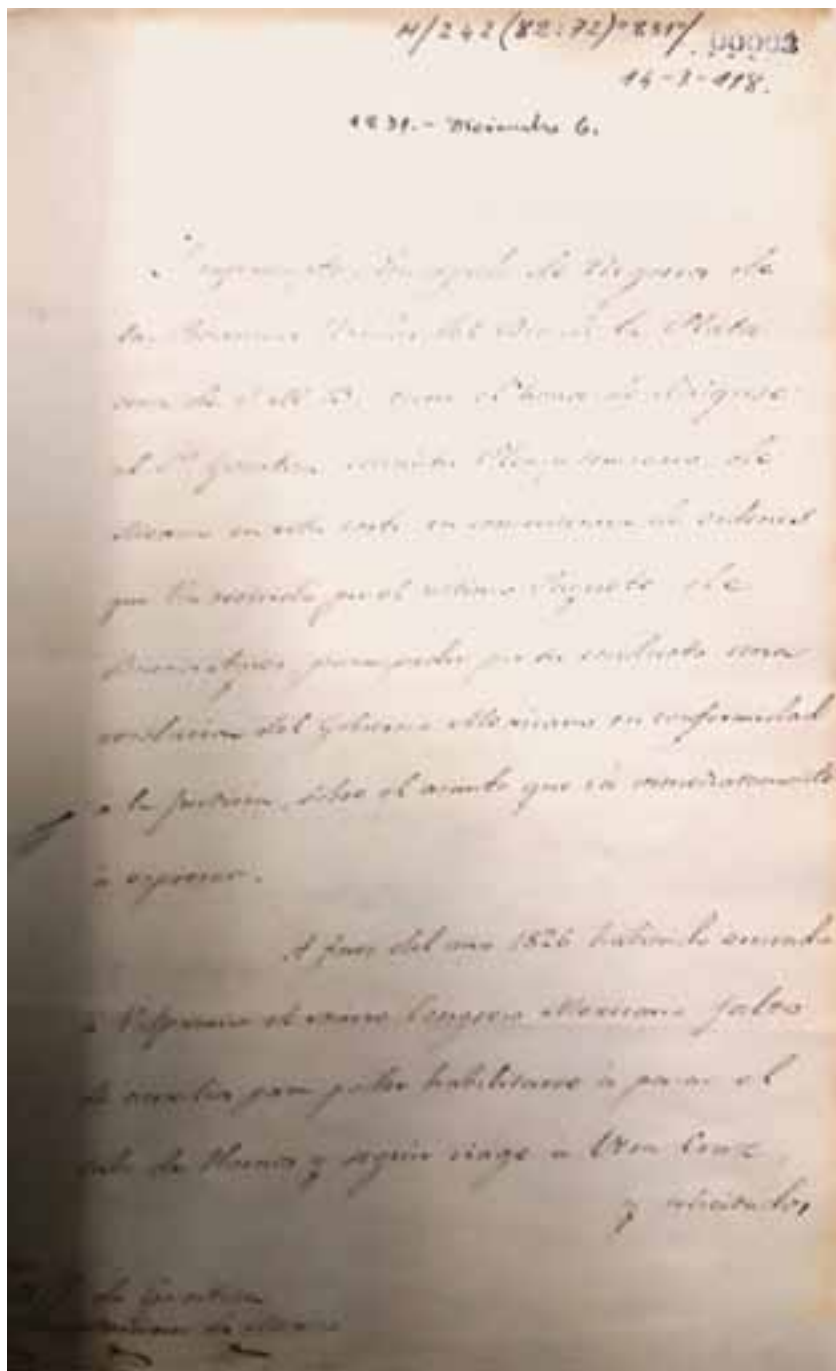 H/242(82:72)"831"/ 00003
14-3-118.
1831.- Diciembre 6.
de Negocios de
las Provincias Unidas del Rio de la Plata
cerca de S.M.B. tiene el honor de dirigirse
al Sr. Gorostiza Ministro Plenipotenciario de
Mexico en esta corte en consecuencia de ordenes
que ha recibido por el ultimo Paquete de
Buenos Ayres, para pedir por su conducto una
resolucion del Gobierno Mexicano en conformidad
a la justicia, sobre el asunto que vá inmediatamente
á espresar.
A fines del año 1826 habiendo arrivado
à Valparaiso el navio Congreso Mexicano falto
de auxilios para poder habilitarse à pasar el
cabo de Hornos y seguir viage a Vera Cruz,
y
de Gorostiza
de Mexico